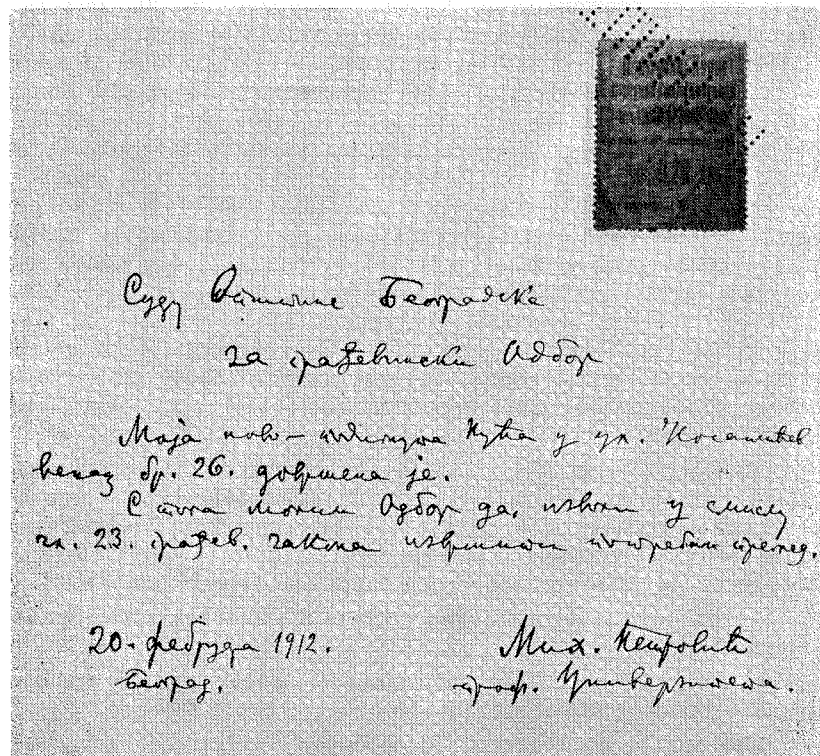 Суду Општине Београдске
за грађевински Одбор
Моја ново-подигнута кућа у ул. Косанчићев
венац бр. 26. довршена је.
С тога молим Одбор да, изволи у смислу
чл. 23. грађев. закона извршити потребан преглед.
20. фебруара 1912.
Београд.
Мих. Петровић
проф. Универзитета.